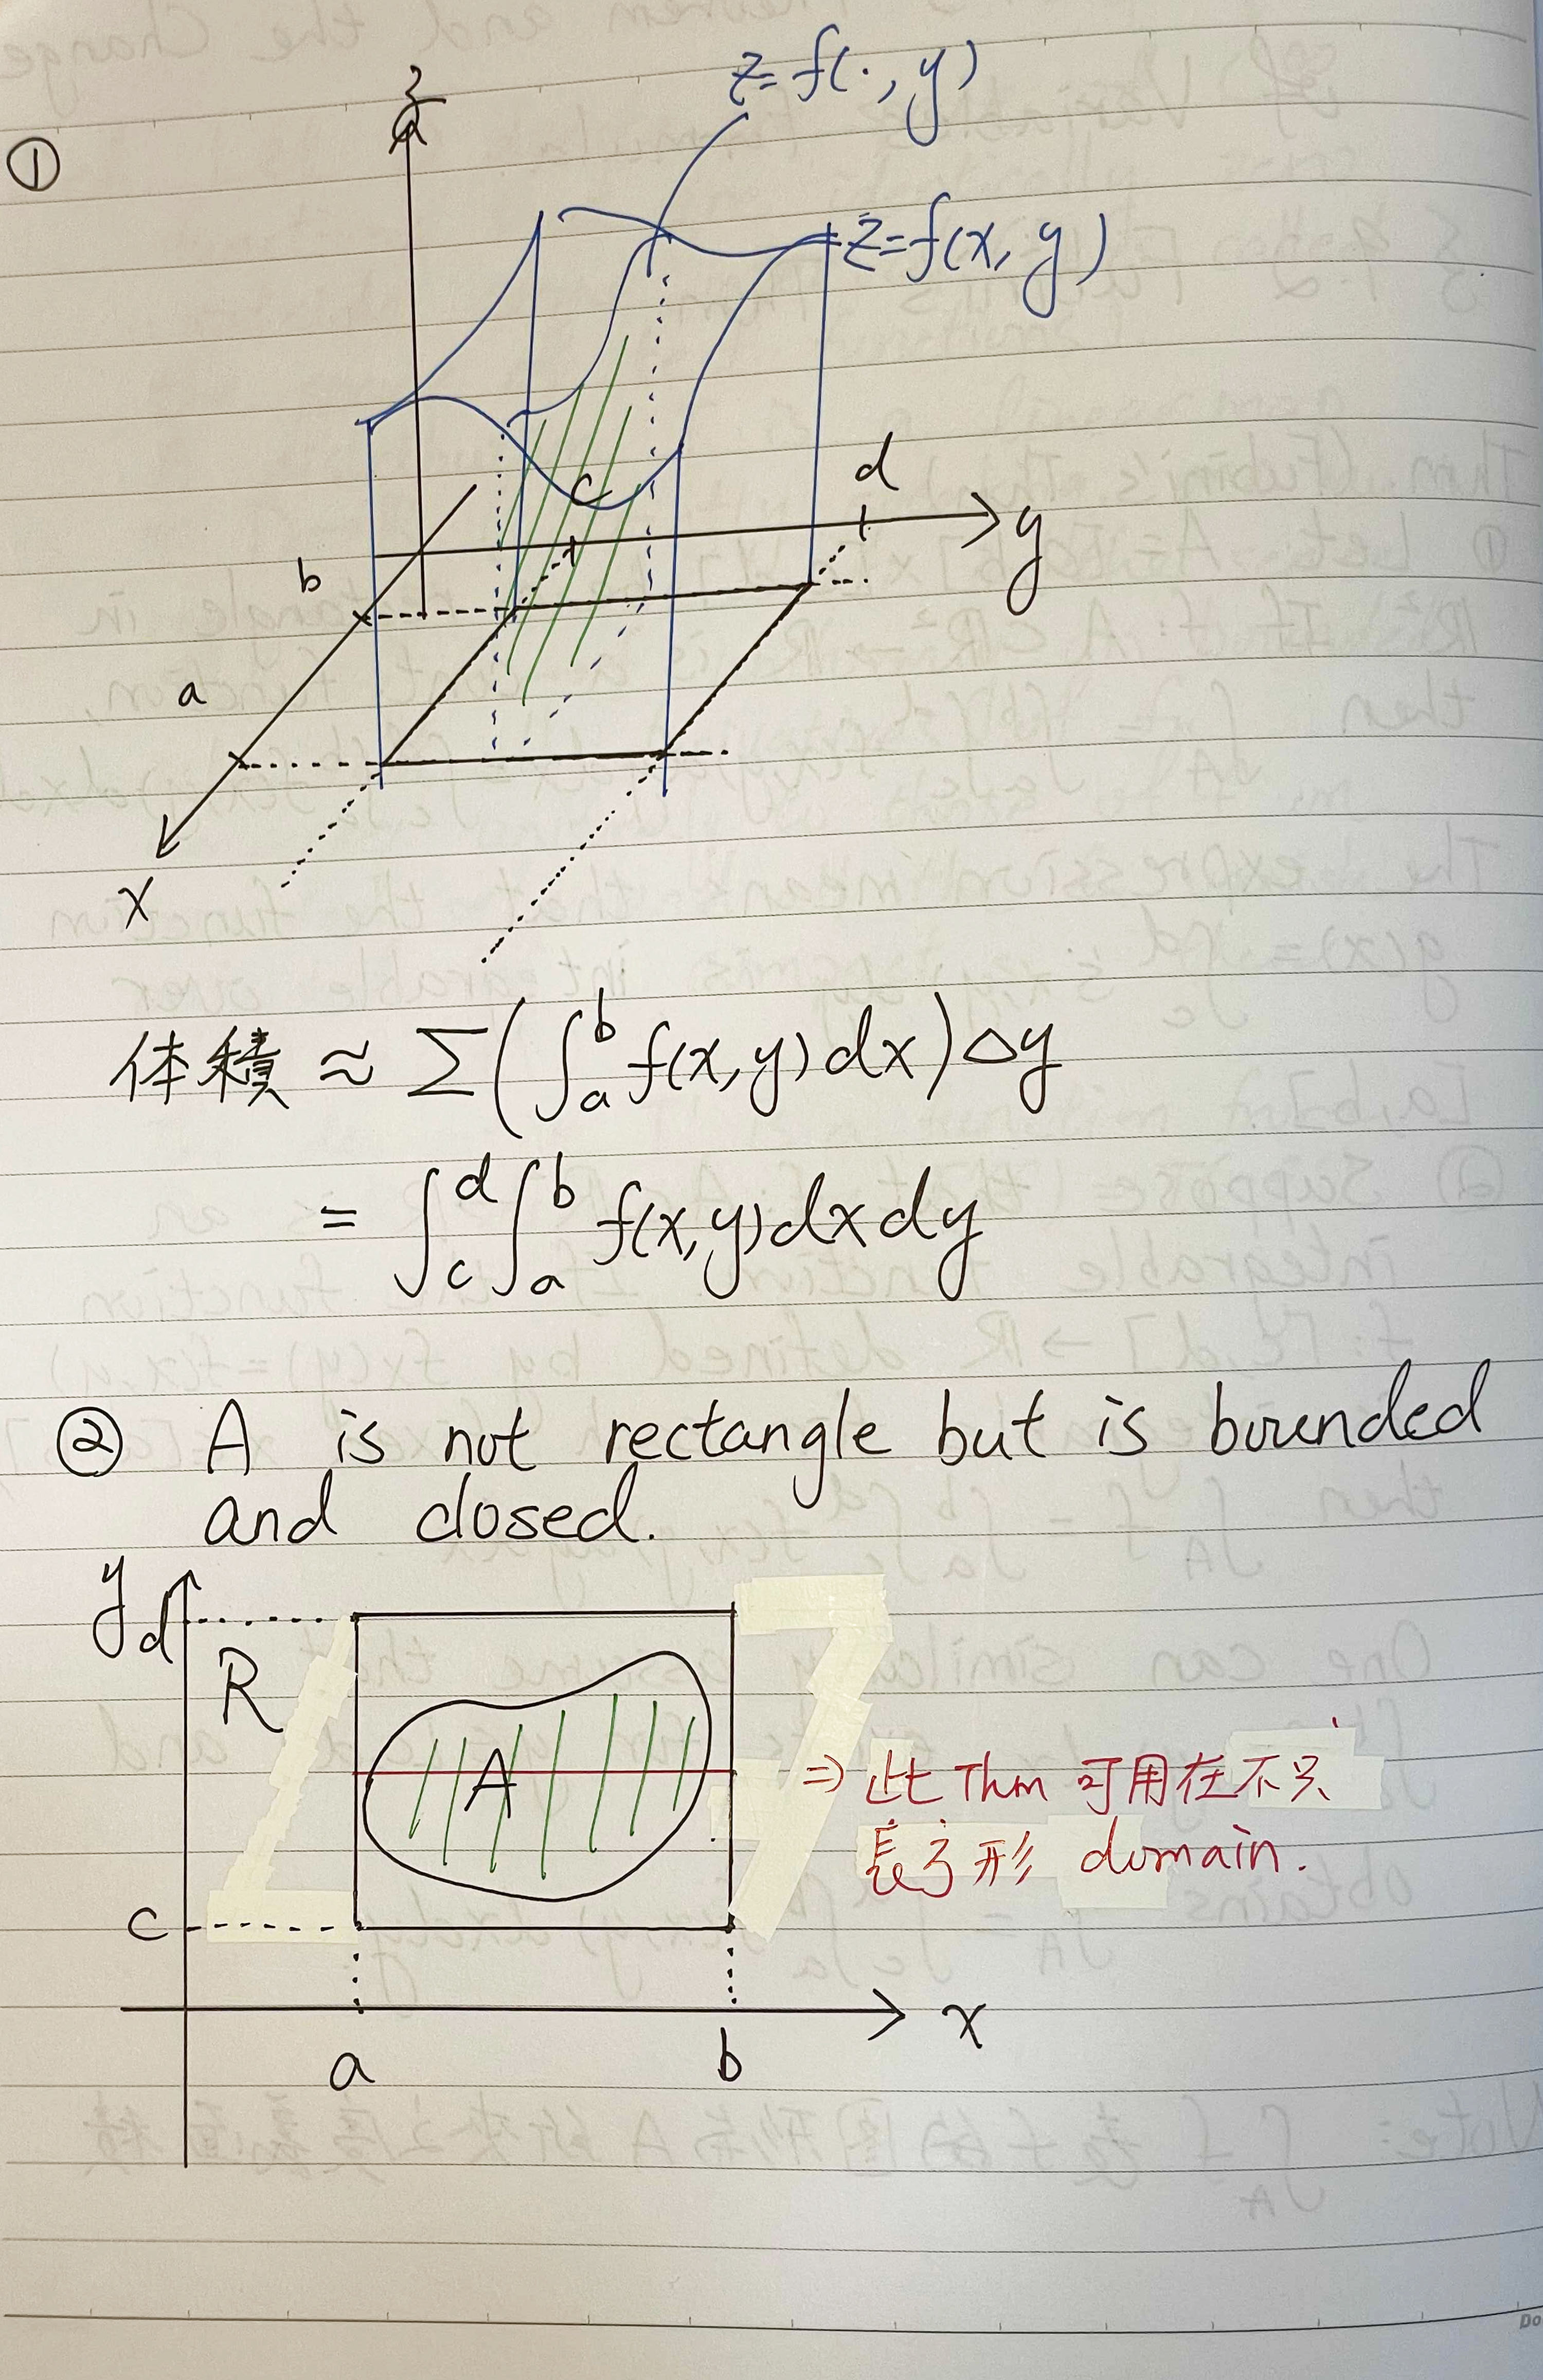 ①
z
z=f(·, y)
z=f(x, y)
c
d
y
b
a
x
体積 ≈ Σ(∫_a^b f(x,y)dx)Δy
= ∫_c^d ∫_a^b f(x,y)dxdy
② A is not rectangle but is bounded
and closed.
y
d
R
A
⇒ 此 Thm 可用在不只
長方形 domain.
c
x
a
b